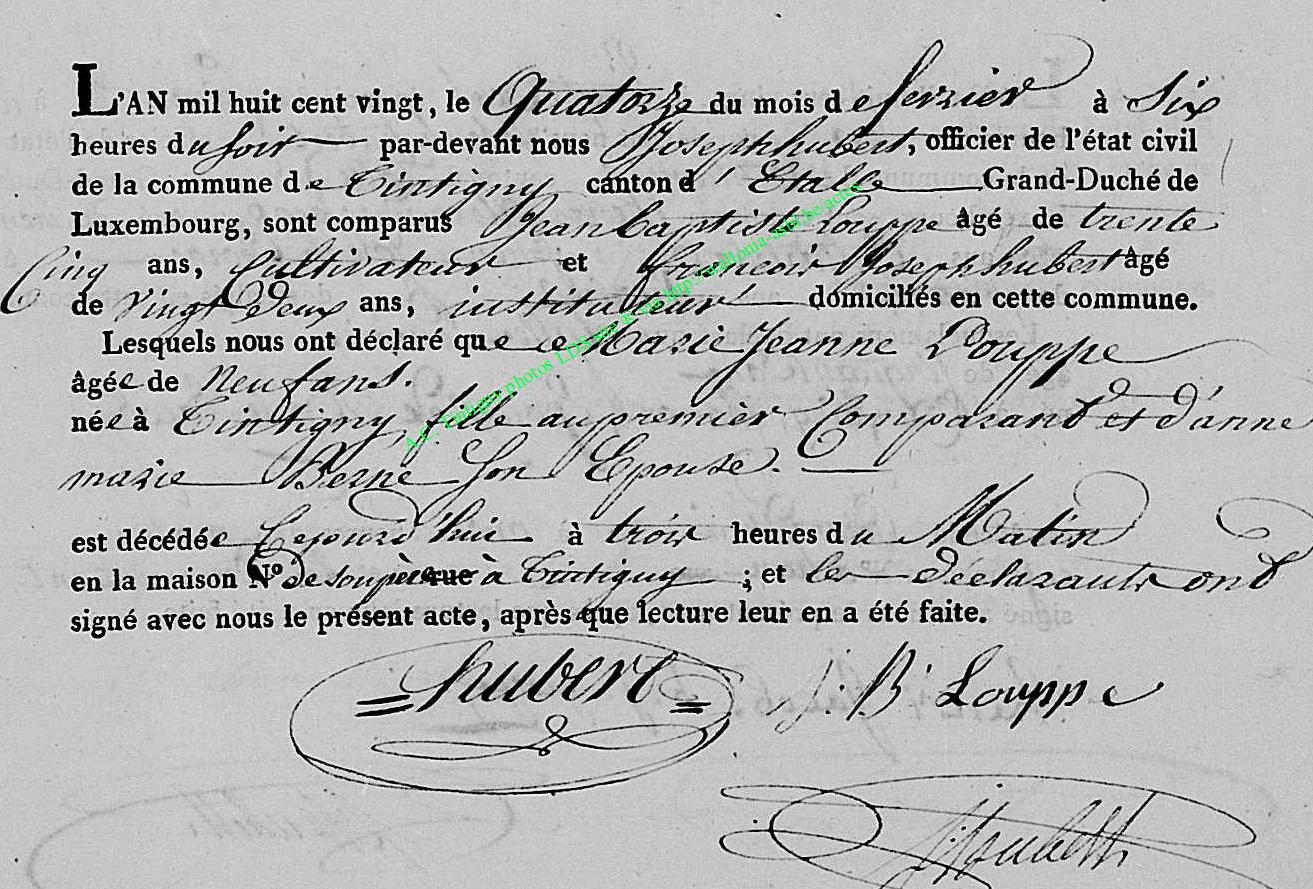 L'AN mil huit cent vingt, le Quatorze du mois de fevrier à Six
heures du soir par-devant nous Joseph hubert, officier de l'état civil
de la commune de Tintigny canton d'Etalle Grand-Duché de
Luxembourg, sont comparus Jean baptiste Louppe âgé de trente
Cinq ans, Cultivateur et francois Joseph hubert âgé
de vingt deux ans, instituteur domiciliés en cette commune.
Lesquels nous ont déclaré que Marie Jeanne Louppe
âgée de Neuf ans.
née à Tintigny, fille au premier Comparant et d'anne
marie Berne Son Epouse.
est décédée Cejourd'hui à trois heures du Matin
en la maison No de son père à Tintigny ; et les déclarants ont
signé avec nous le présent acte, après que lecture leur en a été faite.
hubert J: B: Louppe
A.C. Tintigny photos LDS site & via http://wallonia-asbl.be/actes